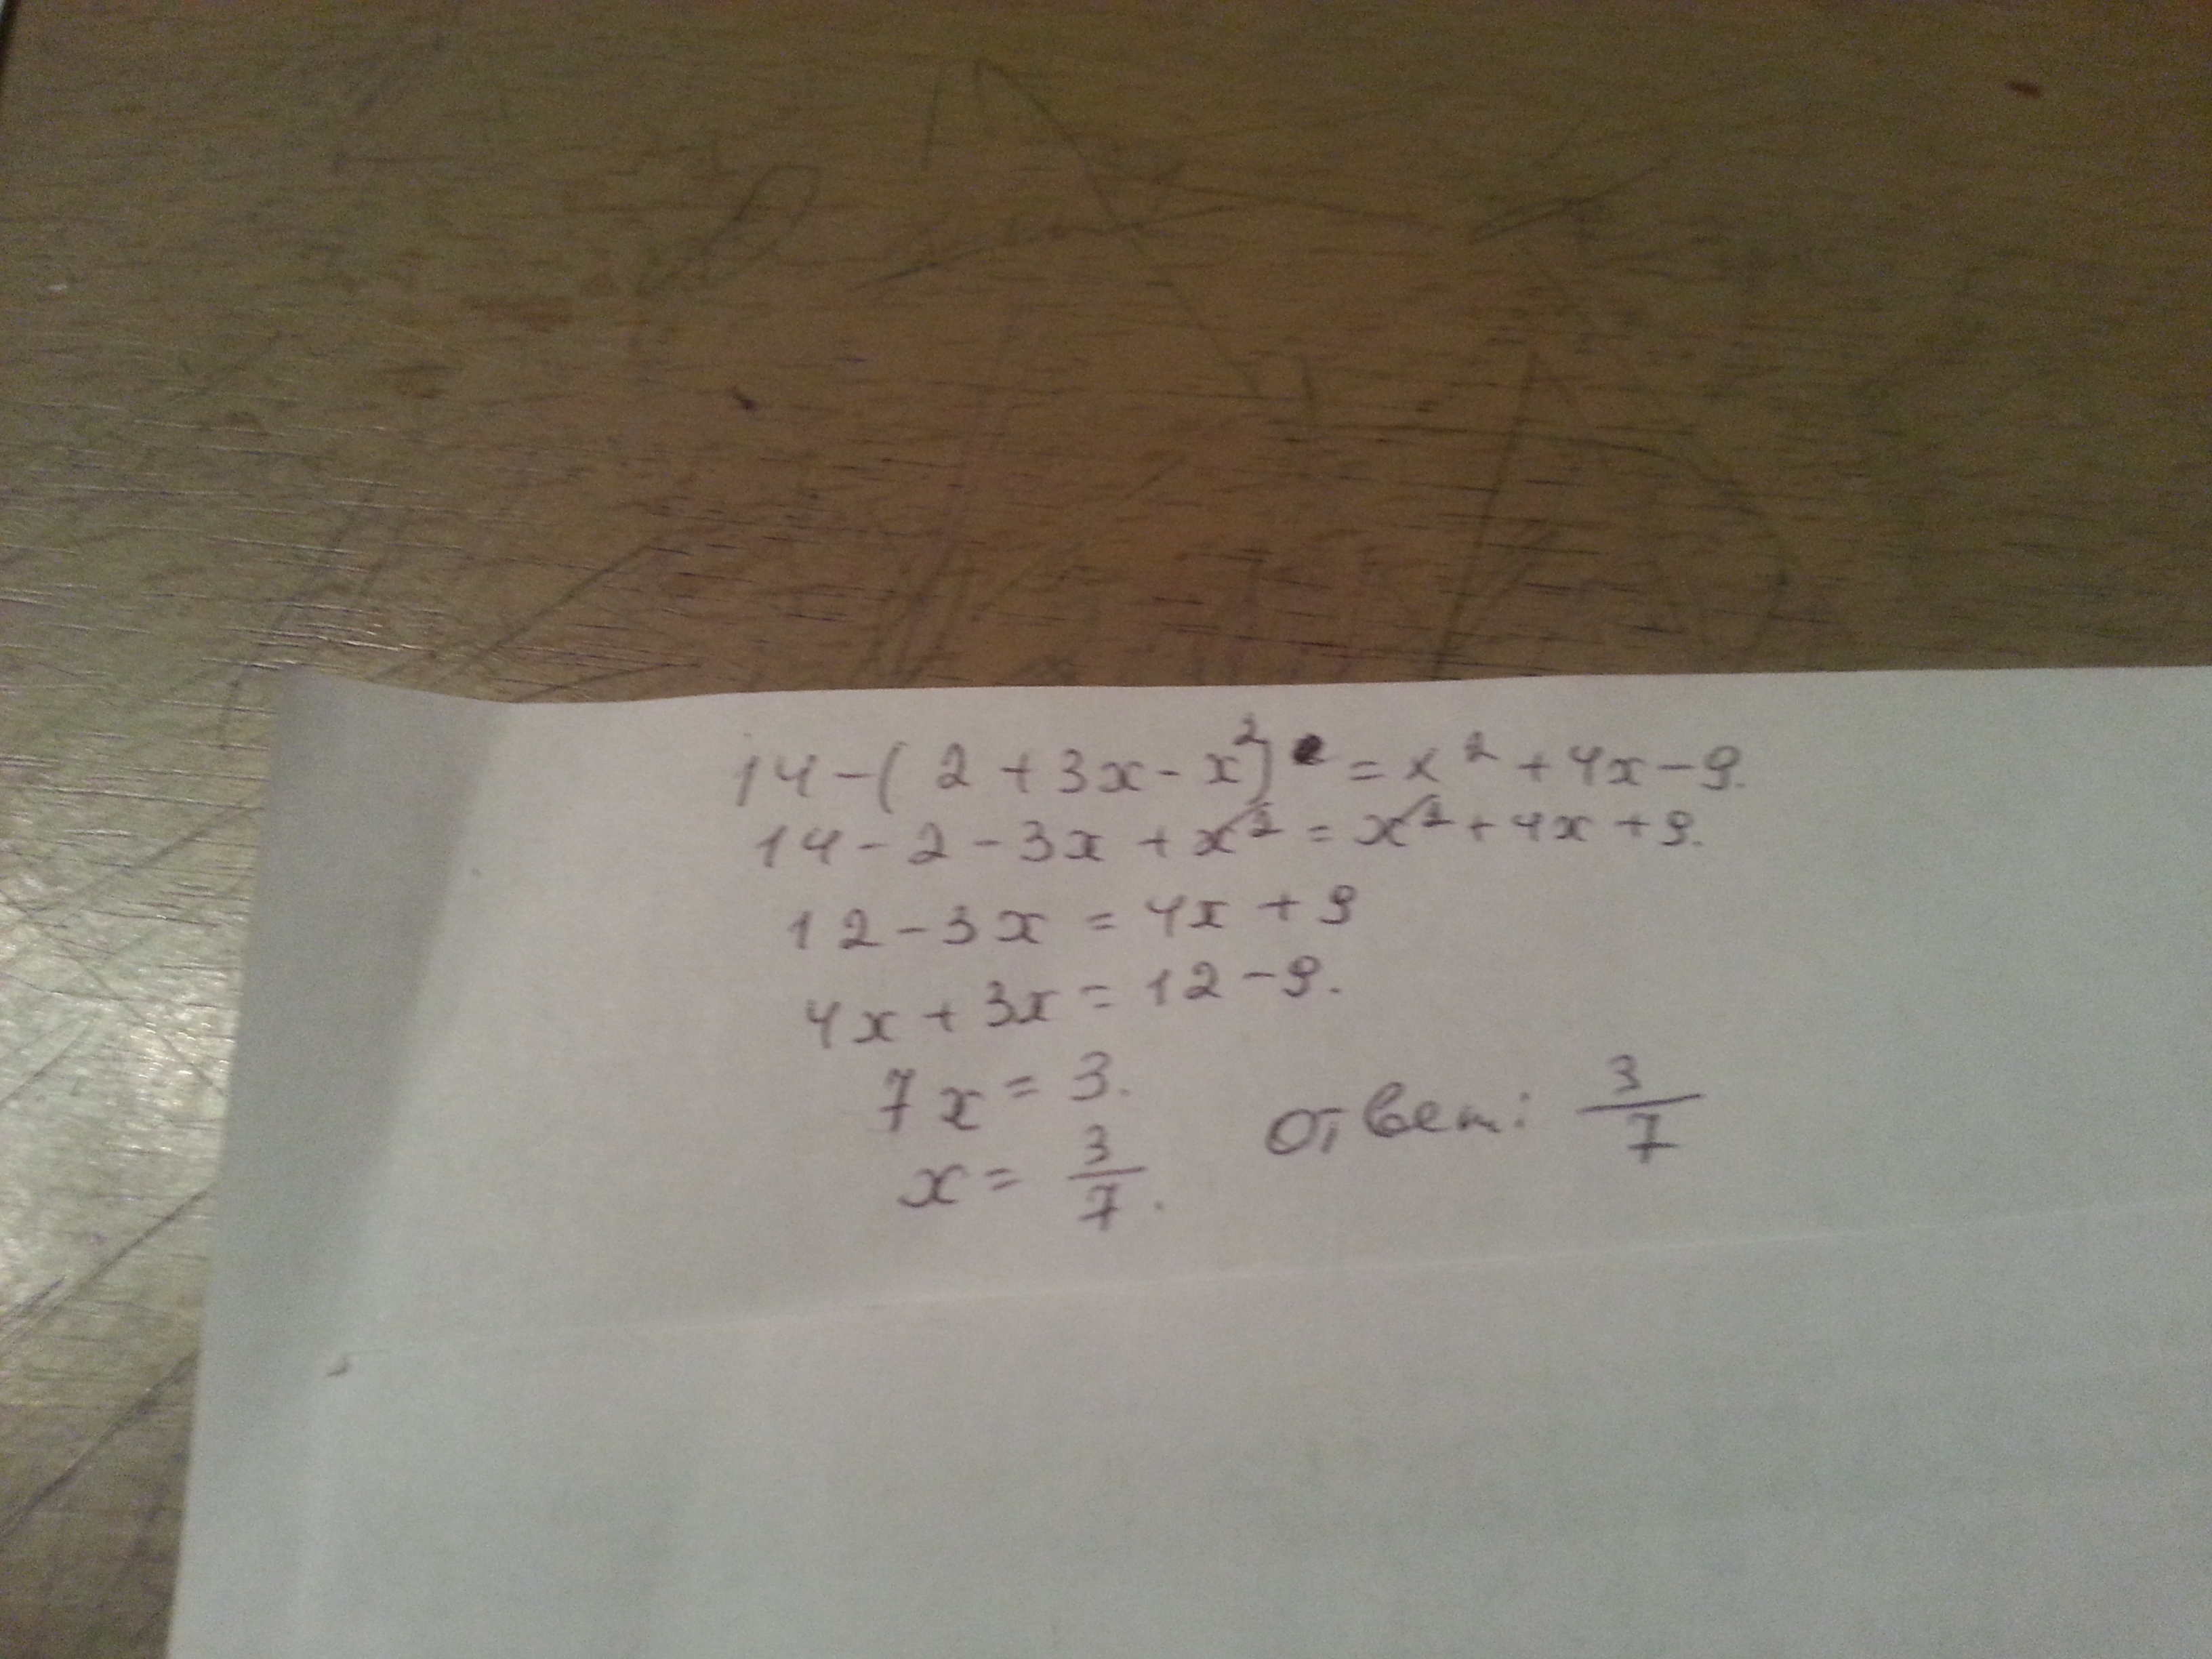 14-(2+3x-x²) = x²+4x-9.
14-2-3x+x²=x²+4x+9.
12-3x=4x+9
4x+3x=12-9.
7x=3.
x=3/7. ответ: 3/7